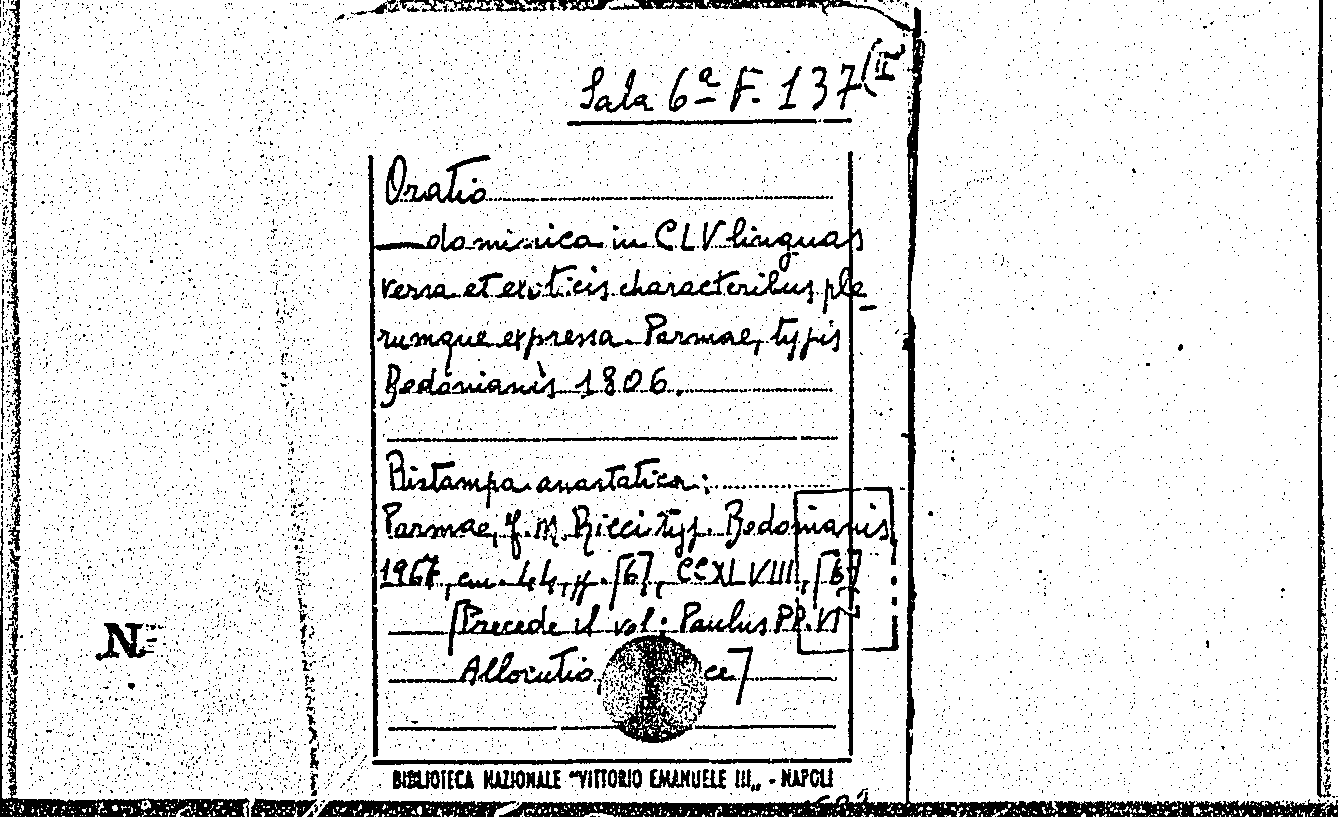 Sala 6ª F. 137 (II
Oratio
— dominica in CLV linguas
versa et exoticis characteribus ple_
rumque expressa. Parmae, typis
Bodonianis 1806.
Ristampa anastatica:
Parmae, f. m. Ricci typ. Bodonianis,
1967, cm. 44, pp. [6], CCXLVIII, [6]
[Precede il vol: Paulus PP. VI
Allocutio, ce]
N
BIBLIOTECA NAZIONALE "VITTORIO EMANUELE III„ - NAPOLI